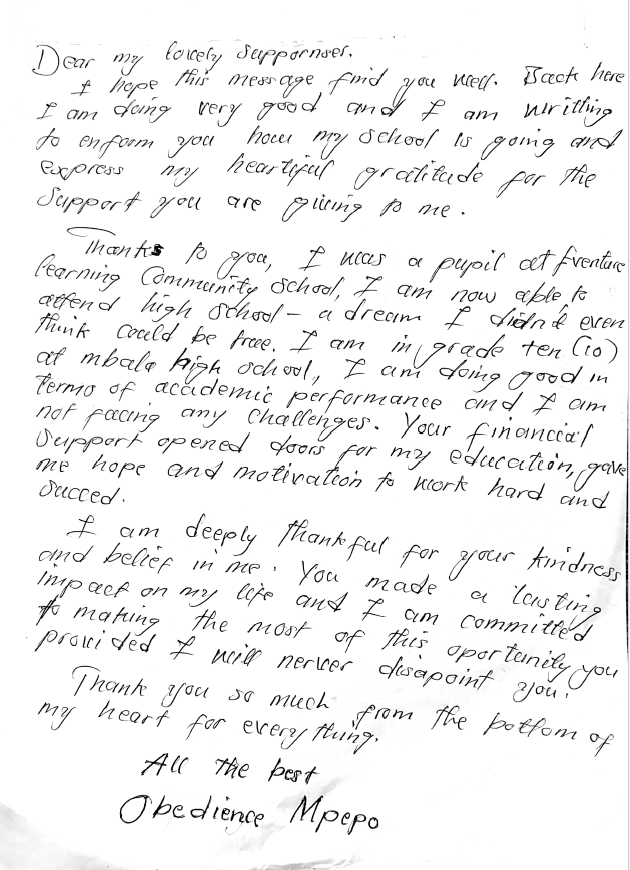 Dear my lovely suppornser.
I hope this message find you well. Back here
I am doing very good and I am writting
to enform you how my school is going and
express my heartiful gratitude for the
Support you are giving to me.
Thanks to you, I was a pupil at fventure
learning Community School, I am now able to
attend high school – a dream I didn't even
think could be true. I am in grade ten (10)
at mbala high school, I am doing good in
terms of academic performance and I am
not facing any challenges. Your financial
Support opened doors for my education, gave
me hope and motivation to work hard and
Succed.
I am deeply thankful for your kindness
and belief in me. You made a lasting
impact on my life and I am committed
to making the most of this oportunity you
provided I will nerver disapoint you.
Thank you so much from the bottom of
my heart for everything.
All the best
Obedience Mpepo